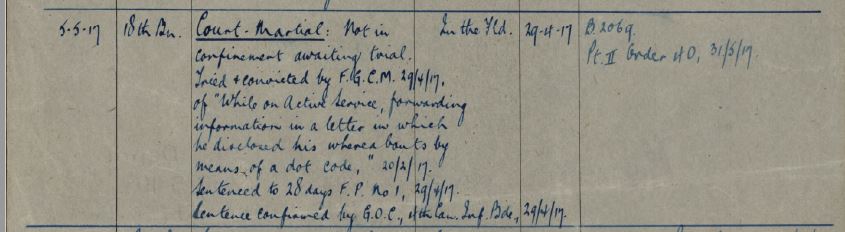 5-5-17 18th Bn. Court-Martial: Not in In the Fld. 29-4-17 B.2069.
confinement awaiting trial. Pt. II Order 40, 31/5/17.
Tried & convicted by F.G.C.M. 29/4/17,
of "While on Active Service, forwarding
information in a letter in which
he disclosed his whereabouts by
means of a dot code," 20/2/17.
Sentenced to 28 days F.P. No 1, 29/4/17.
Sentence confirmed by G.O.C., 4th Can. Inf. Bde., 29/4/17.